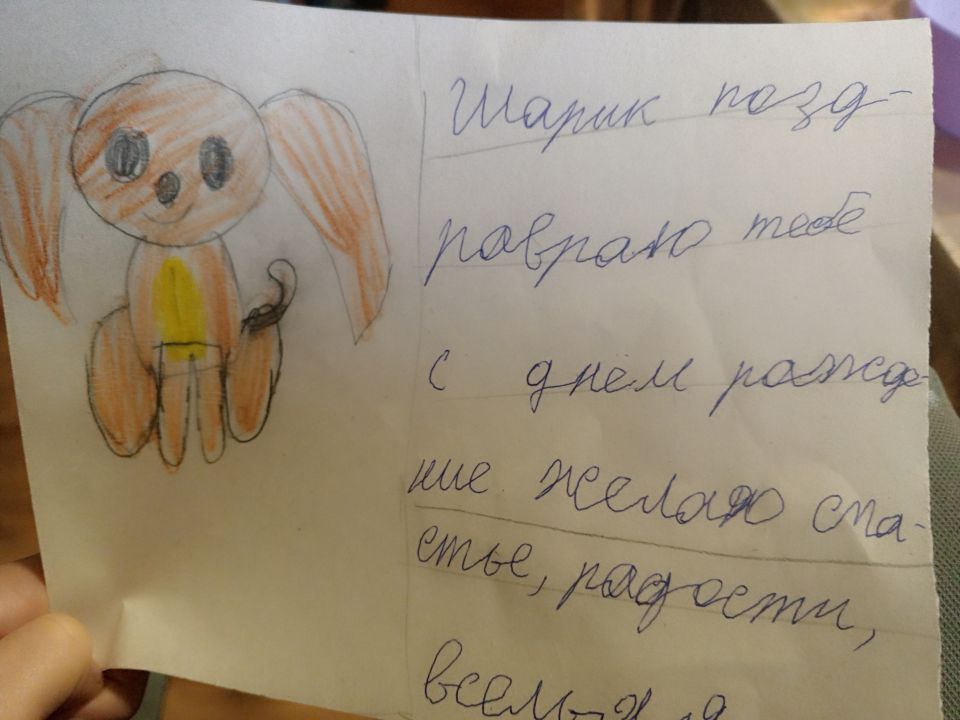 Шарик позд-
равраю тебе
с днём ражде-
ние желаю спа-
стье, радости,